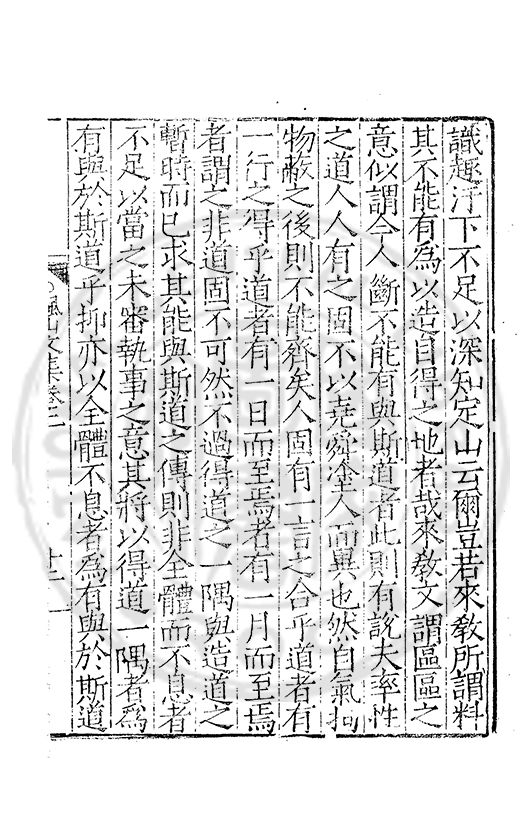 識趣汙下不足以深知定山云爾豈若來敎所謂料
其不能有爲以造自得之地者哉來敎文謂區區之
意似謂今人斷不能有與斯道者此則有說夫率性
之道人人有之固不以堯舜塗人而異也然自氣拘
物蔽之後則不能齊矣人固有一言之合乎道者有
一行之得乎道者有一日而至焉者有一月而至焉
者謂之非道固不可然不過得道之一隅與造道之
暫時而已求其能與斯道之傳則非全體而不息者
不足以當之未審執事之意其將以得道一隅者爲
有與於斯道乎抑亦以全體不息者爲有與於斯道
文集卷二
十二